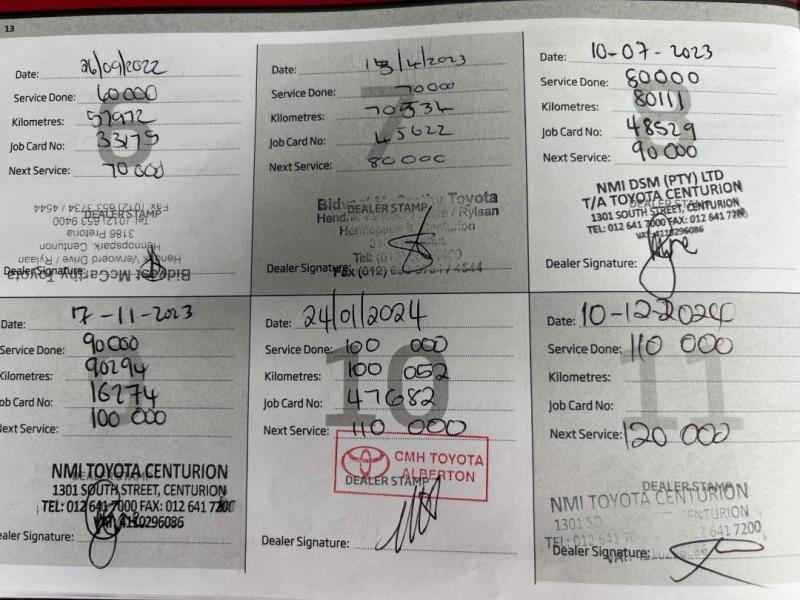 13
Date: 26/09/2022
Service Done: 60000
Kilometres: 57972
Job Card No: 33175
6
Next Service: 70000
Fax (012) 653 3734 / 4544
DEALER STAMP
Tel: (012) 653 9400
3186 Pretoria
Hennospark, Centurion
Hendrik Verwoerd Drive / Rylaan
Dealer Signature:
Bidvest McCarthy Toyota
Date: 18/4/2023
Service Done: 70000
7
Kilometres: 70534
Job Card No: 45622
Next Service: 80000
Bidvest McCarthy Toyota
DEALER STAMP
Drive / Rylaan
Centurion
Tel: (012)
Dealer Signature:
Fax (012) / 4544
Date: 10-07-2023
Service Done: 80000
Kilometres: 80111
8
Job Card No: 48529
Next Service: 90000
NMI DSM (PTY) LTD
T/A TOYOTA CENTURION
DEALER STAMP
1301 SOUTH STREET, CENTURION
TEL: 012 641 7000 FAX: 012 641 7200
VAT: 4110296086
Dealer Signature:
Date: 7-11-2023
Service Done: 90000
Kilometres: 90294
Job Card No: 16274
Next Service: 100 000
NMI TOYOTA CENTURION
DEALER STAMP
1301 SOUTH STREET, CENTURION
TEL: 012 641 7000 FAX: 012 641 7200
VAT: 4110296086
Dealer Signature:
Date: 24/01/2024
Service Done: 100 000
Kilometres: 100 052
10
Job Card No: 47682
Next Service: 110 000
CMH TOYOTA
ALBERTON
DEALER STAMP
Dealer Signature:
Date: 10-12-2024
Service Done: 110 000
Kilometres:
11
Job Card No:
Next Service: 120 000
DEALER STAMP
NMI TOYOTA CENTURION
1301 CENTURION
TEL: 012 641 7200
Dealer Signature: